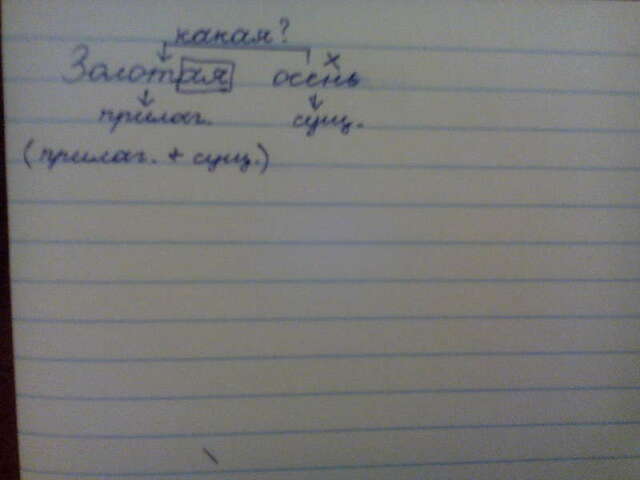 какая?
х
Золотая осень
прилаг. сущ.
(прилаг. + сущ.)